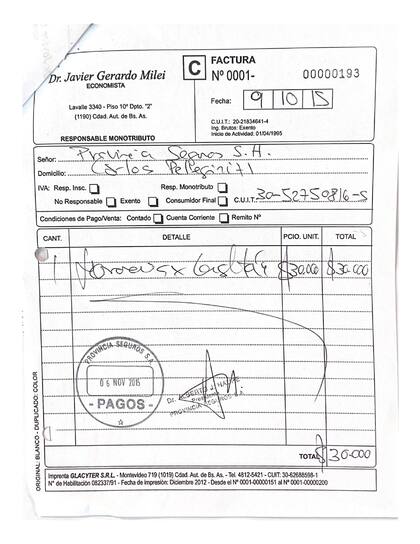 Dr. Javier Gerardo Milei
ECONOMISTA
Lavalle 3340 - Piso 10º Dpto. "2"
(1190) Cdad. Aut. de Bs. As.
RESPONSABLE MONOTRIBUTO
C
FACTURA
Nº 0001- 00000193
Fecha: 9 10 15
C.U.I.T.: 20-21834641-4
Ing. Brutos: Exento
Inicio de Actividad: 01/04/1995
Señor: Provincia Seguros S.A.
Domicilio: Carlos Pellegrini 71
IVA: Resp. Insc. Resp. Monotributo
No Responsable Exento Consumidor Final C.U.I.T. 30-52750816-5
Condiciones de Pago/Venta: Contado Cuenta Corriente Remito Nº
CANT. DETALLE PCIO. UNIT. TOTAL
1 Honorarios x $30.000 $30.000
PROVINCIA SEGUROS S.A.
06 NOV 2015
- PAGOS -
PROVINCIA SEGUROS S.A.
TOTAL $30.000
ORIGINAL: BLANCO - DUPLICADO: COLOR
Imprenta GLACYTER S.R.L. - Montevideo 719 (1019) Cdad. Aut. de Bs. As. - Tel. 4812-5421 - CUIT: 30-62688598-1
N° de Habilitación 082337/91 - Fecha de Impresión: Diciembre 2012 - Desde el Nº 0001-00000151 al Nº 0001-00000200